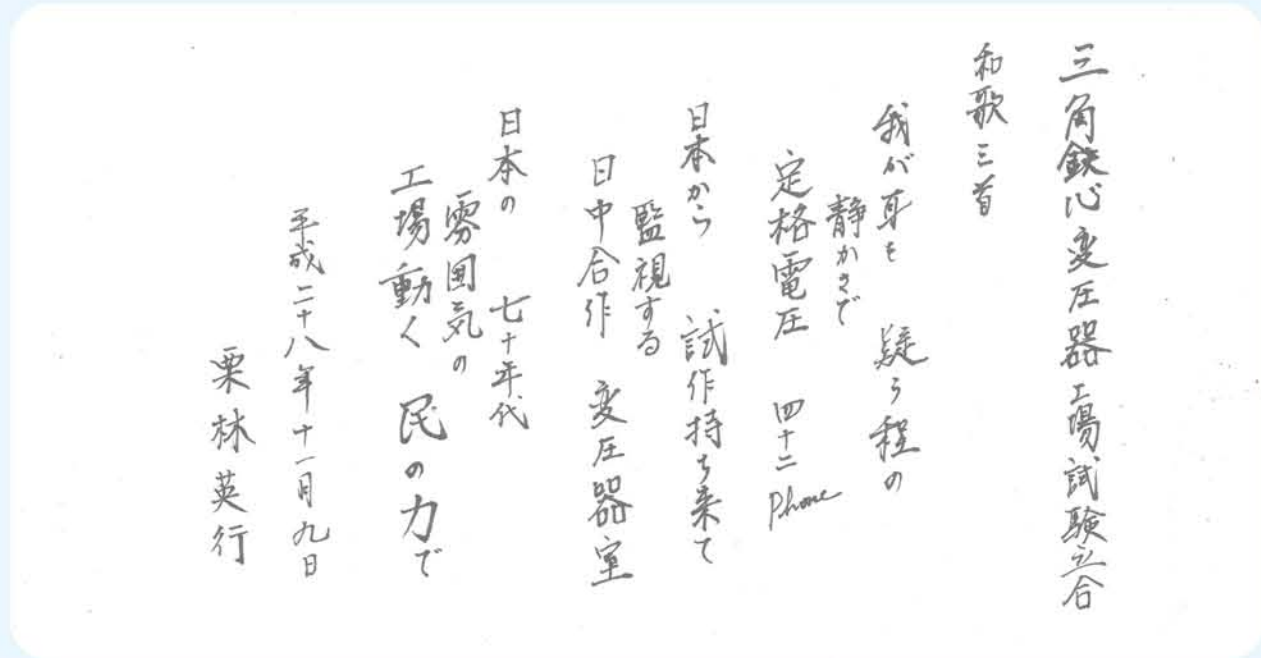 三角鉄心変圧器工場試験立合
和歌三首
我が耳を 疑う程の
静かさで
定格電圧 四十二 Phone
日本から 試作持ち来て
監視する
日中合作 変圧器室
日本の 七十年代
雰囲気の
工場動く 民の力で
平成二十八年十一月九日
栗林英行